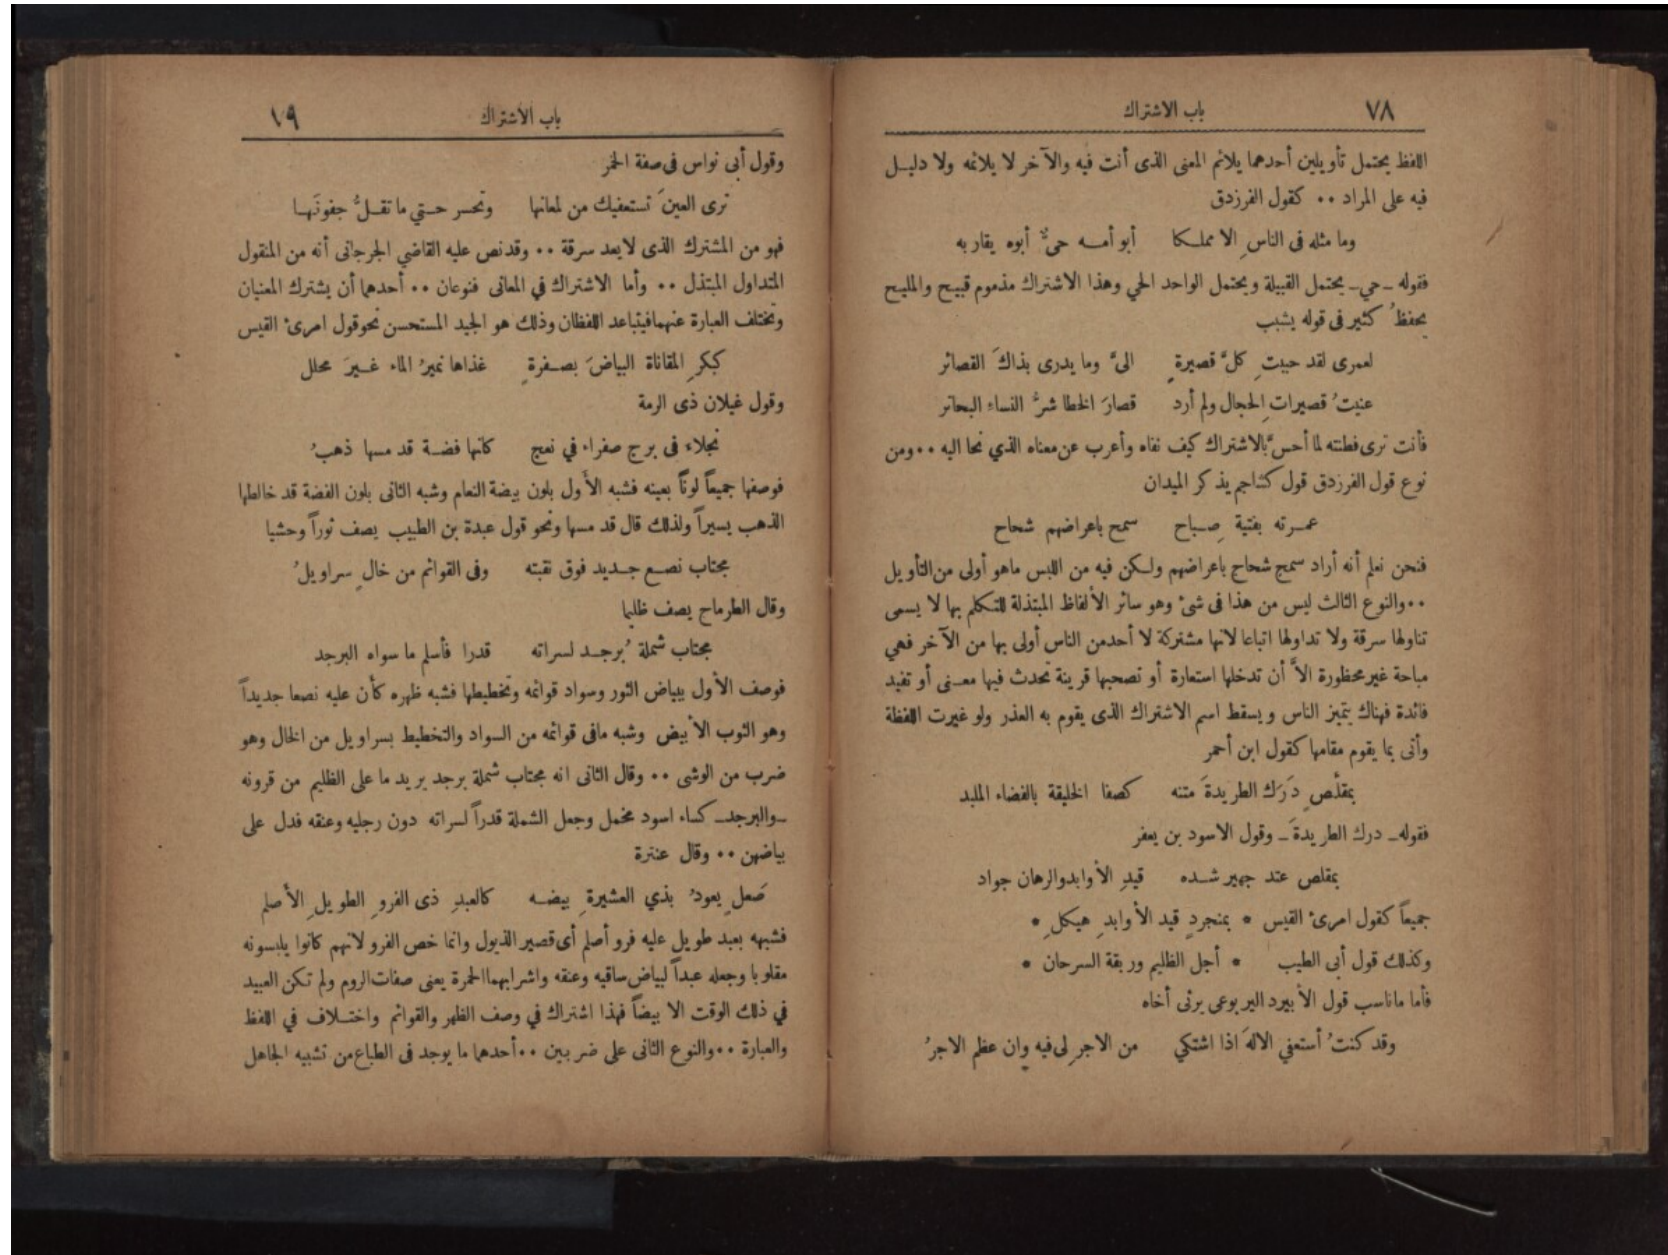 ٧٨ باب الاشتراك
اللفظ يحتمل تأويلين أحدهما يلائم المعنى الذى أنت فيه والآخر لا يلائمه ولا دليل
فيه على المراد ٠٠ كقول الفرزدق
وما مثله فى الناسِ الا مملكا أبو أمه حىٌّ أبوه يقاربه
فقوله ـ حي ـ يحتمل القبيلة ويحتمل الواحد الحي وهذا الاشتراك مذموم قبيح والمليح
بحفظُ كثير فى قوله يشبب
لعمرى لقد حببتِ كلَّ قصيرةٍ الىَّ وما يدرى بذاكَ القصائر
عنيتُ قصيرات الحجال ولم أرد قصارَ الخطا شرُّ النساء البحاتر
فأنت ترى فطنته لما أحسَّ بالاشتراك كيف نفاه وأعرب عن معناه الذي نحا اليه ٠٠ ومن
نوع قول الفرزدق قول كشاجم يذكر الميدان
عمرته بفتية صِباح سمح باعراضهم شحاح
فنحن نعلم أنه أراد سمج شحاح باعراضهم ولكن فيه من اللبس ماهو أولى من التأويل
٠٠ والنوع الثالث ليس من هذا فى شئ وهو سائر الألفاظ المبتذلة للتكلم بها لا يسمى
تناولها سرقة ولا تداولها اتباعا لانها مشتركة لا أحد من الناس أولى بها من الآخر فهي
مباحة غير محظورة الاَّ أن تدخلها استعارة أو تصحبها قرينة تحدث فيها معنى أو تفيد
فائدة فهناك يتميز الناس ويسقط اسم الاشتراك الذى يقوم به العذر ولو غيرت اللفظة
وأتى بما يقوم مقامها كقول ابن أحمر
بمقلّصٍ دَرَك الطريدةَ متنه كصفا الخليقة بالفضاء الملبد
فقوله ـ درك الطريدةَ ـ وقول الاسود بن يعفر
بمقلص عند جهير شده قيدِ الأوابد والرهان جواد
جميعاً كقول امرئ القيس * بمنجردٍ قيد الأوابدِ هيكلِ *
وكذلك قول أبى الطيب * أجل الظليم وربقة السرحان *
فأما ماناسب قول الأبيرد اليربوعى يرثى أخاه
وقد كنتُ أستعفي الالهَ اذا اشتكي من الاجرِ لى فيه وإن عظم الاجرُ
باب الأشتراك ٧٩
وقول أبى نواس فى صفة الخمر
ترى العينَ تستعفيك من لمعانها وتحسر حتي ما تقلُّ جفونَها
فهو من المشترك الذى لايعد سرقة ٠٠ وقد نص عليه القاضي الجرجانى أنه من المنقول
المتداول المبتذل ٠٠ وأما الاشتراك في المعانى فنوعان ٠٠ أحدهما أن يشترك المعنيان
وتختلف العبارة عنهما فيتباعد اللفظان وذلك هو الجيد المستحسن نحو قول امرئ القيس
كبكرِ المقاناة البياضَ بصفرةٍ غذاها نميرُ الماء غيرَ محلل
وقول غيلان ذى الرمة
نجلاء فى برج صفراء في نعج كانها فضة قد مسها ذهبُ
فوصفها جميعاً لوناً بعينه فشبه الأول بلون بيضة النعام وشبه الثانى بلون الفضة قد خالطها
الذهب يسيراً ولذلك قال قد مسها ونحو قول عبدة بن الطبيب يصف ثوراً وحشيا
مجتاب نصع جديد فوق نقبته وفى القوائم من خالٍ سراويلُ
وقال الطرماح يصف ظليما
مجتاب شملة بُرجد لسراته قدرا فأسلم ما سواه البرجد
فوصف الأول ببياض الثور وسواد قوائمه وتخطيطها فشبه ظهره كأن عليه نصعا جديداً
وهو الثوب الأبيض وشبه مافى قوائمه من السواد والتخطيط بسراويل من الخال وهو
ضرب من الوشى ٠٠ وقال الثانى انه مجتاب شملة برجد يريد ما على الظليم من قرونه
ـ والبرجد ـ كساء اسود مخمل وجعل الشملة قدراً لسراته دون رجليه وعنقه فدل على
بياضهن ٠٠ وقال عنترة
صَعلٍ يعودُ بذي العشيرةِ بيضه كالعبدِ ذى الفروِ الطويلِ الأصلم
فشبهه بعبد طويل عليه فرو أصلم أى قصير الذيول وانما خص الفرو لانهم كانوا يلبسونه
مقلوبا وجعله عبداً لبياض ساقيه وعنقه واشرابهما الحمرة يعنى صفات الروم ولم تكن العبيد
في ذلك الوقت الا بيضاً فهذا اشتراك في وصف الظهر والقوائم واختلاف في اللفظ
والعبارة ٠٠ والنوع الثانى على ضربين ٠٠ أحدهما ما يوجد فى الطباع من تشبيه الجاهل